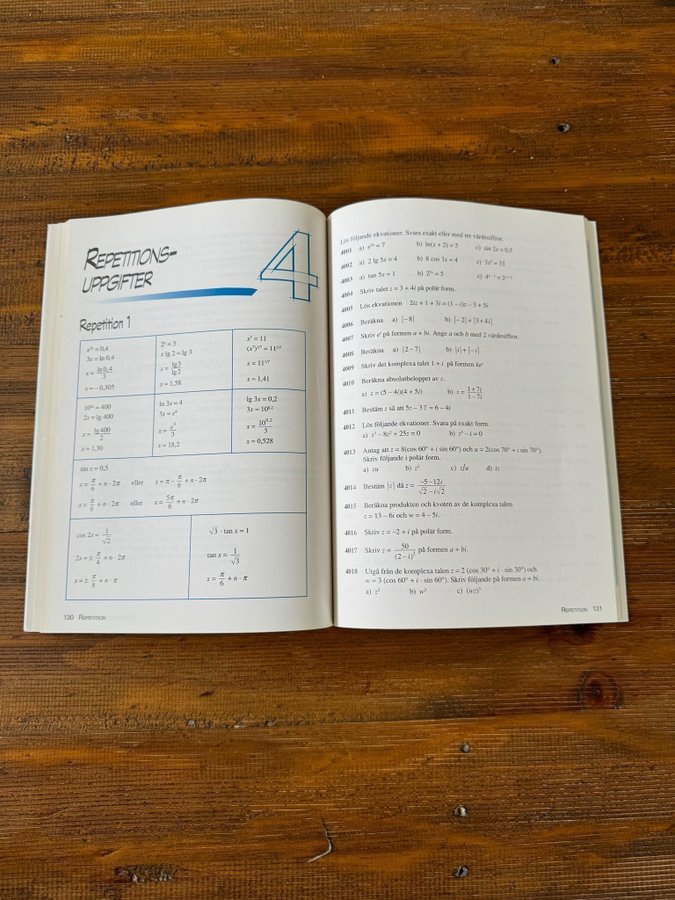 REPETITIONS-
UPPGIFTER
4
Repetition 1
e³ˣ = 0,4
3x = ln 0,4
x = ln 0,4 / 3
x ≈ – 0,305
2ˣ = 3
x lg 2 = lg 3
x = lg 3 / lg 2
x ≈ 1,58
x⁷ = 11
(x⁷)¹ᐟ⁷ = 11¹ᐟ⁷
x = 11¹ᐟ⁷
x ≈ 1,41
10²ˣ = 400
2x = lg 400
x = lg 400 / 2
x ≈ 1,30
ln 3x = 4
3x = e⁴
x = e⁴ / 3
x ≈ 18,2
lg 3x = 0,2
3x = 10⁰·²
x = 10⁰·² / 3
x ≈ 0,528
sin x = 0,5
x = π/6 + n · 2π eller x = π – π/6 + n · 2π
x = π/6 + n · 2π eller x = 5π/6 + n · 2π
cos 2x = 1/√2
2x = ± π/4 + n · 2π
x = ± π/8 + n · π
√3 · tan x = 1
tan x = 1/√3
x = π/6 + n · π
130 REPETITION
Lös följande ekvationer. Svara exakt eller med tre värdesiffror.
4001 a) = 7 b) ln(x + 2) = 5 c) sin 2x = 0,5
4002 a) 2 lg 5x = 4 b) 8 cos 3x = 4 c)
4003 a) tan 5x = 1 b) = 5 c)
4004 Skriv talet z = 3 + 4i på polär form.
4005 Lös ekvationen 2iz + 1 + 3i = (1 – i)z – 3 + 5i
4006 Beräkna a) |–8| b) |–2| + |3 + 4i|
4007 Skriv på formen a + bi. Ange a och b med 2 värdesiffror.
4008 Beräkna a) |2 – 7| b) |i| + |–i|
4009 Skriv det komplexa talet 1 + i på formen
4010 Beräkna absolutbeloppet av z.
a) z = (5 – 4i)(4 + 5i) b) z = (1 + 7i)/(1 – 7i)
4011 Bestäm z så att 5z – 3 = 6 – 4i
4012 Lös följande ekvationer. Svara på exakt form.
a) z³ – 8z² + 25z = 0 b) – i = 0
4013 Antag att z = 8(cos 60° + i sin 60°) och u = 2(cos 70° + i sin 70°).
Skriv följande i polär form.
a) zu b) c) z/u d) iz
4014 Bestäm |z| då z = (–5 – 12i)/(√2 – i√2)
4015 Beräkna produkten och kvoten av de komplexa talen
z = 13 – 6i och w = 4 – 5i.
4016 Skriv z = –2 + i på polär form.
4017 Skriv z = 50/(2 – i)² på formen a + bi.
4018 Utgå från de komplexa talen z = 2 (cos 30° + i · sin 30°) och
w = 3 (cos 60° + i · sin 60°). Skriv följande på formen a + bi.
a) z³ b) w² c)
REPETITION 131